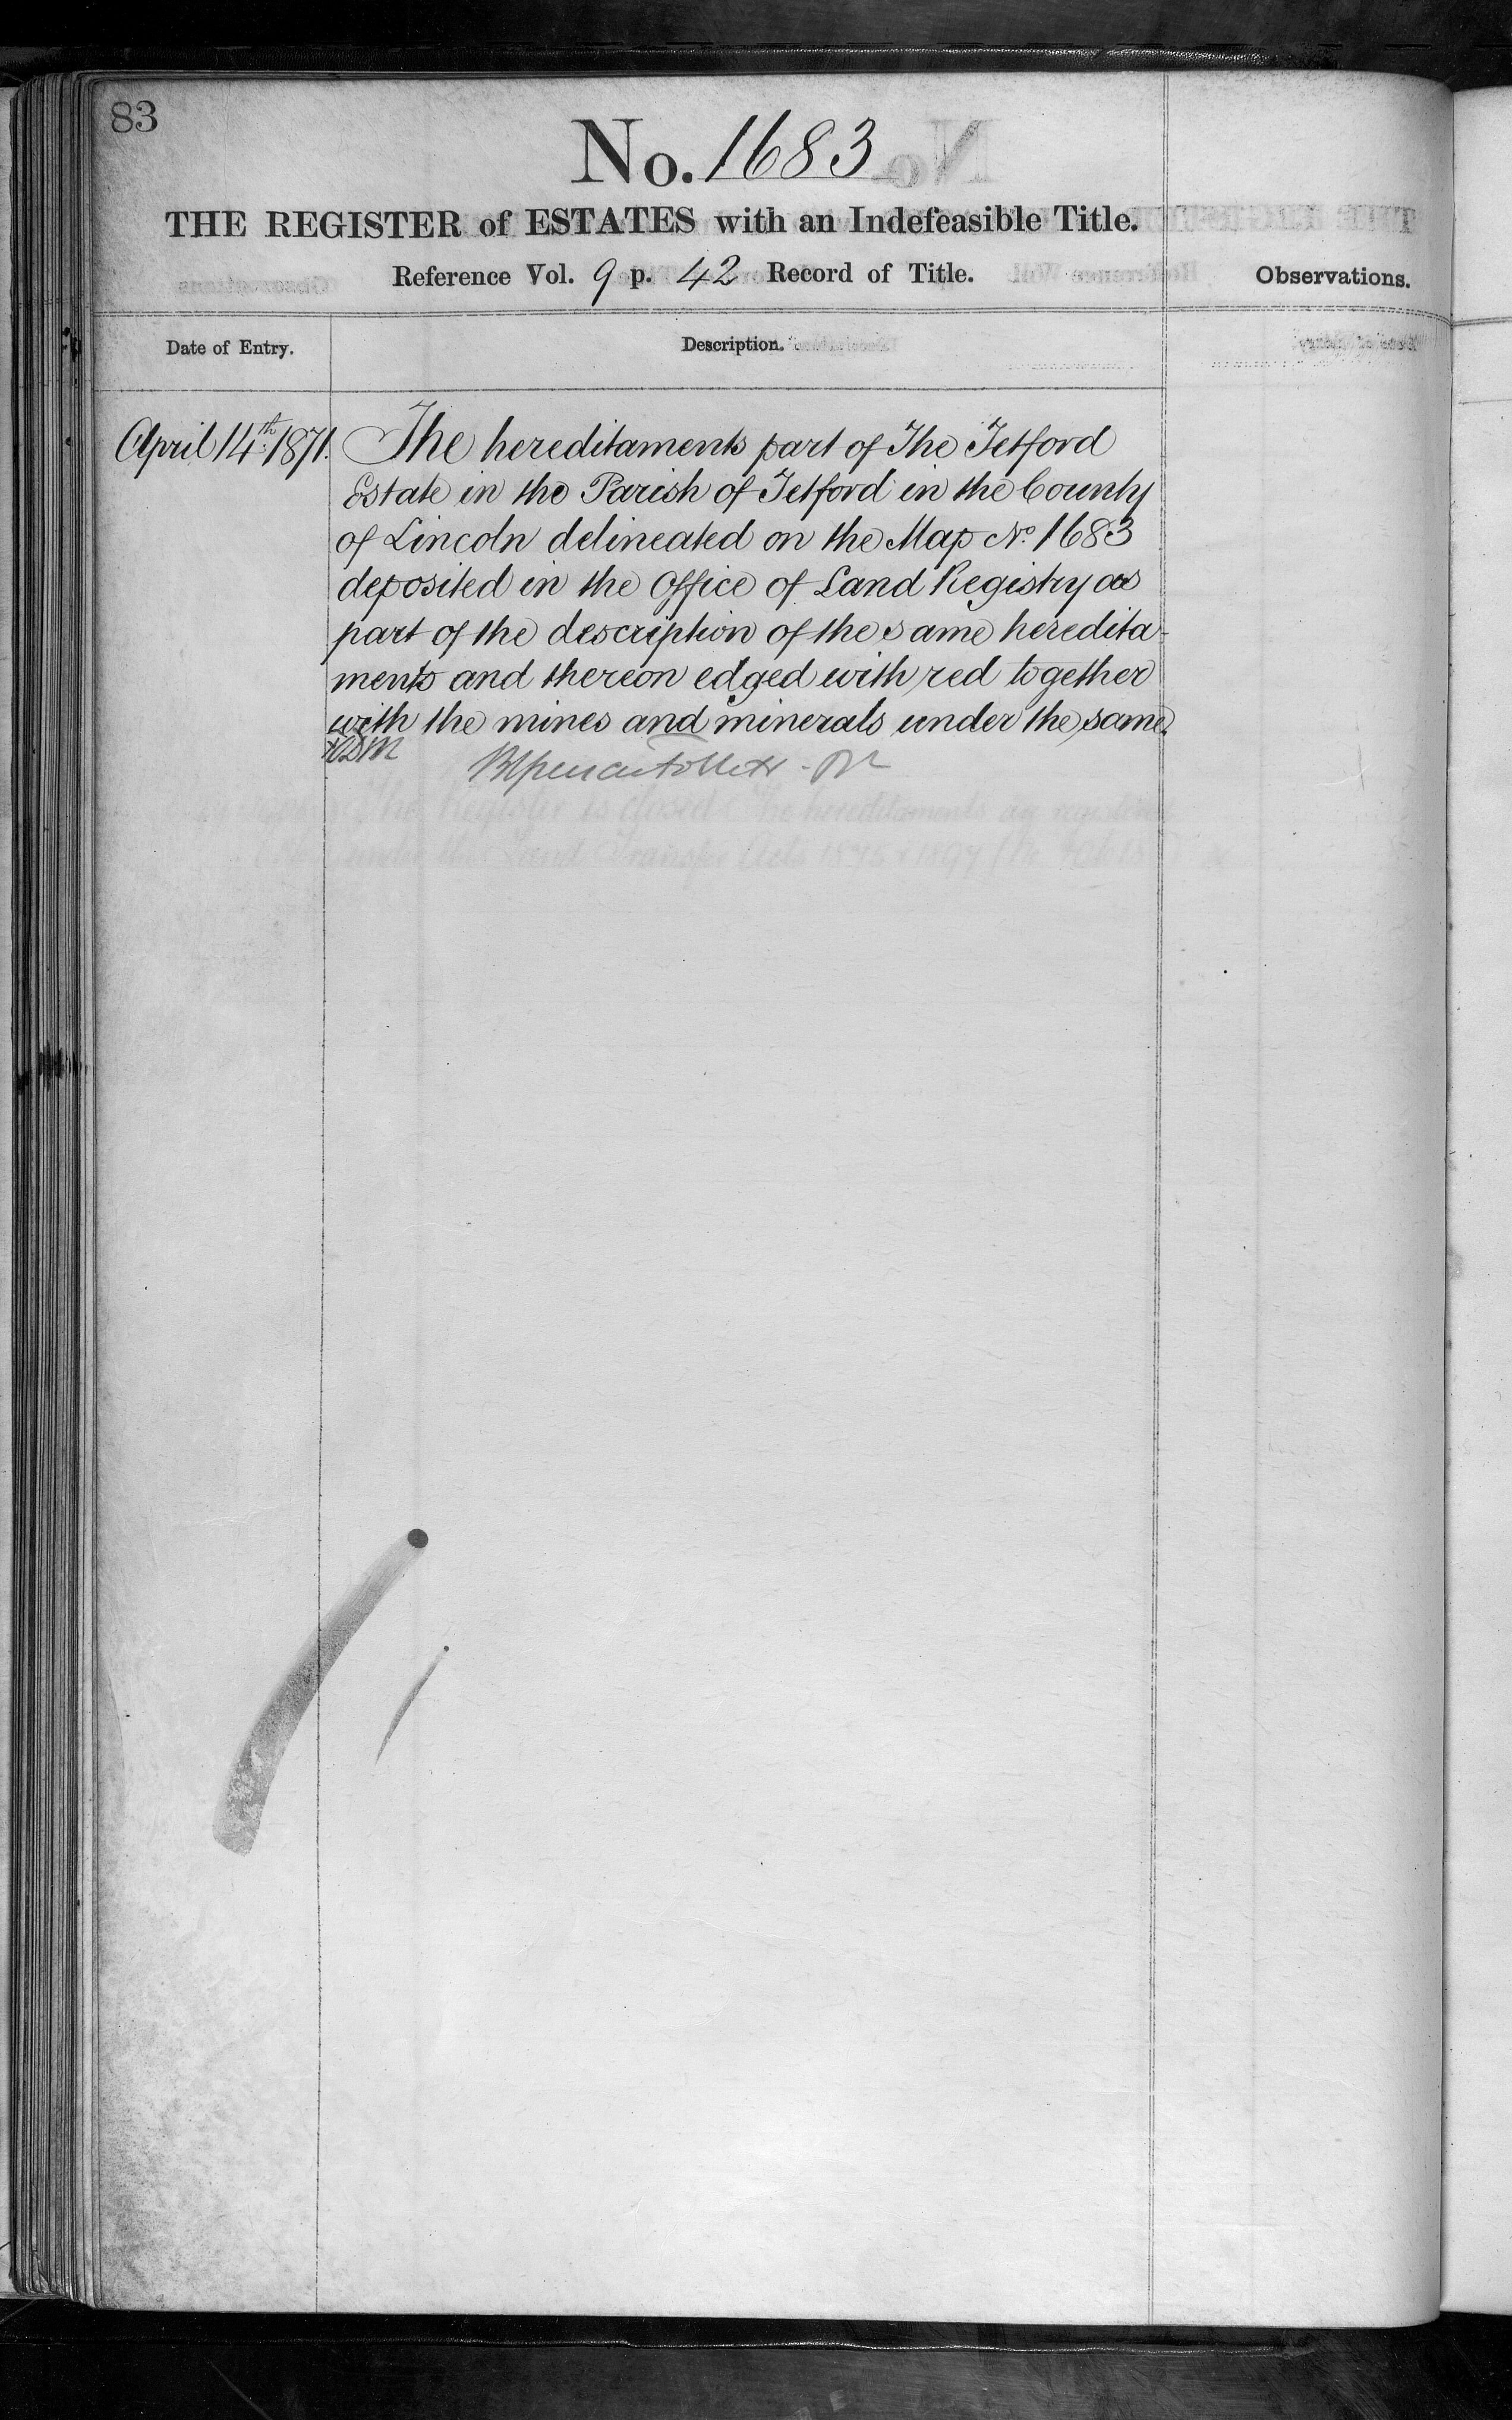 83
No. 1683
THE REGISTER of ESTATES with an Indefeasible Title.
Reference Vol. 9 p. 42 Record of Title.
Observations.
Date of Entry.
Description.
April 14th. 1871. The hereditaments part of The Tetford
Estate in the Parish of Tetford in the County
of Lincoln delineated on the Map No. 1683
deposited in the Office of Land Registry as
part of the description of the same heredita-
ments and thereon edged with red together
with the mines and minerals under the same.
The Register is closed The hereditaments are registered
under the Land Transfer Acts 1875 & 1897